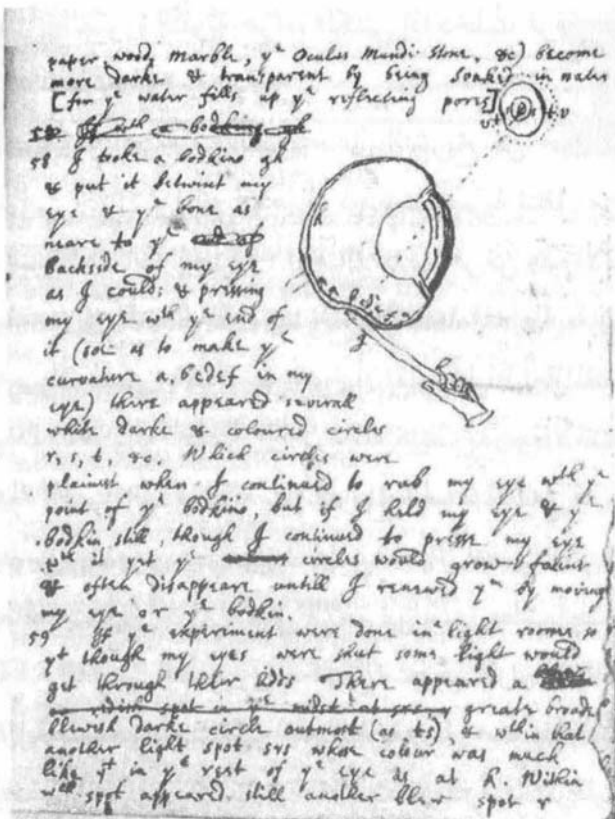 paper, wood, marble, yᵉ Oculus Mundi stone, &c) become
more darke & transparent by being soaked in water
[for yᵉ water fills up yᵉ reflecting pores]
58 I tooke a bodkine gh
& put it betwixt my
eye & yᵉ bone as
neare to yᵉ
backside of my eye
as I could: & pressing
my eye wth yᵉ end of
it (soe as to make yᵉ
curvature a, bcdef in my
eye) there appeared severall
white darke & coloured circles
r, s, t, &c. Which circles were
plainest when I continued to rub my eye wth yᵉ
point of yᵉ bodkine, but if I held my eye & yᵉ
bodkin still, though I continued to presse my eye
wth it yet yᵉ circles would grow faint
& often disappeare untill I renewed yᵐ by moving
my eye or yᵉ bodkin.
59 If yᵉ experiment were done in a light roome so
yᵗ though my eyes were shut some light would
get through their lidds There appeared a
greate broade
blewish darke circle outmost (as ts), & wthin that
another light spot srs whose colour was much
like yᵗ in yᵉ rest of yᵉ eye as at k. Within
wch spot appeared still another blew spot r